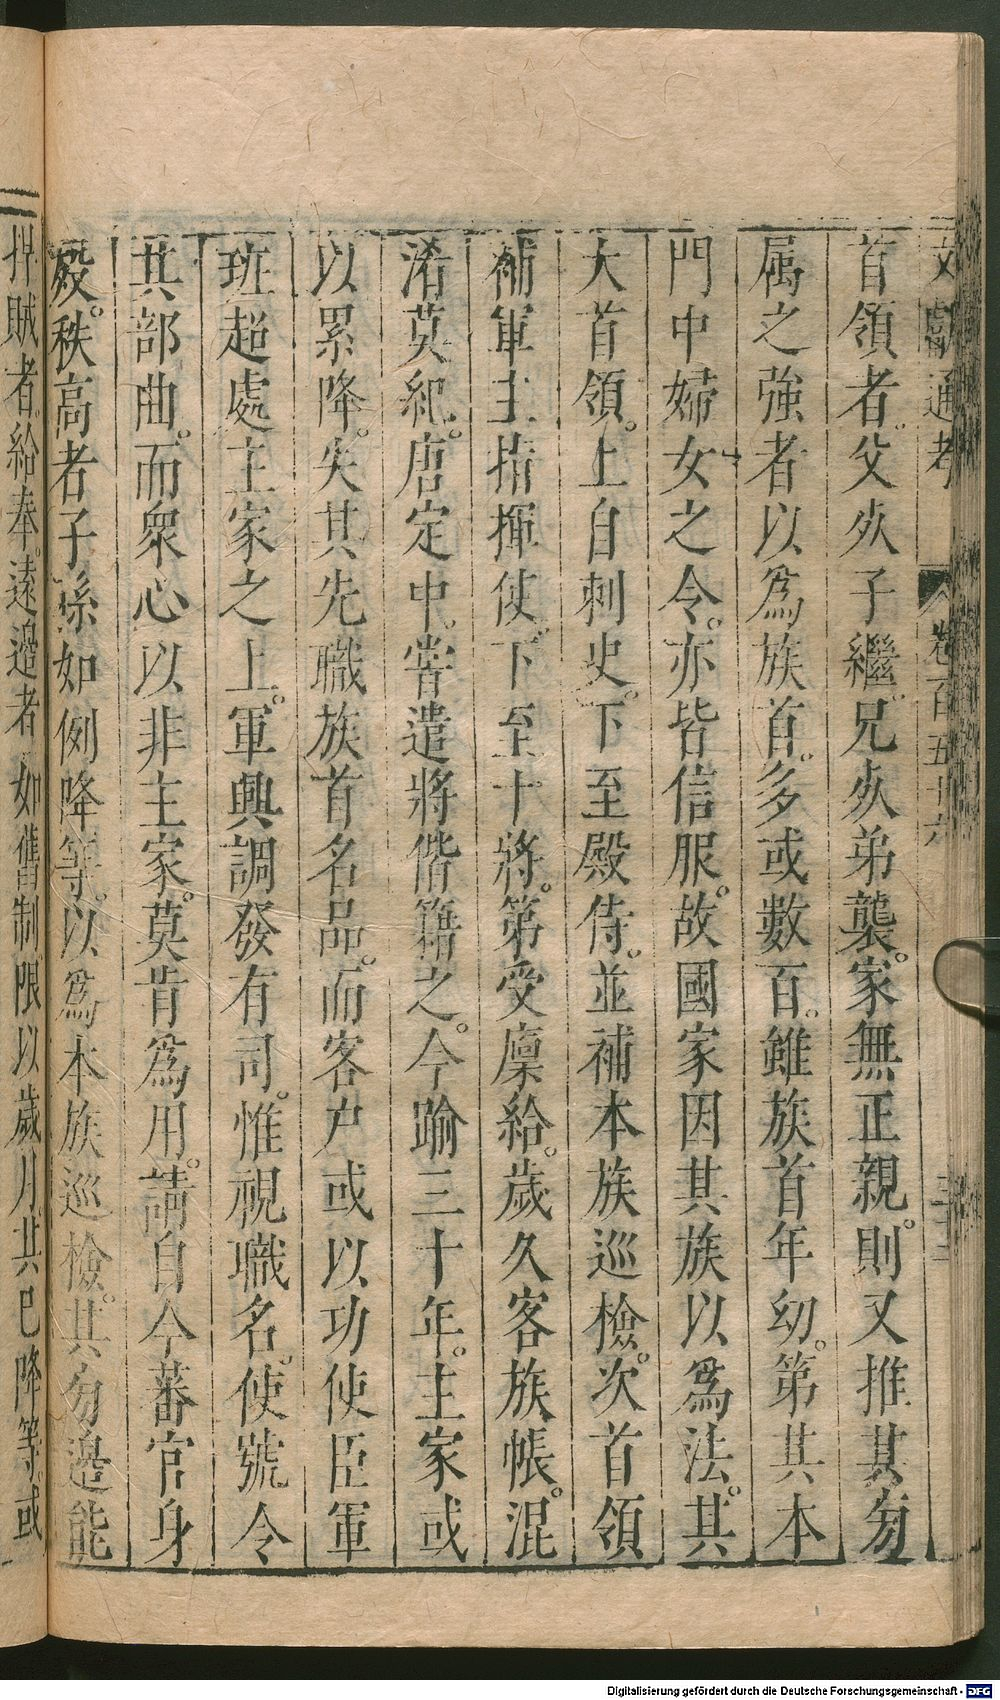 文獻通考 卷百五十六
首領者。父死子繼。兄死弟襲。家無正親。則又推其旁
属之強者以爲族首。多或數百。雖族首年幼。第其本
門中婦女之令。亦皆信服。故國家因其族以爲法。其
大首領。上自刺史。下至殿侍。並補本族巡檢。次首領
補軍主指揮使。下至十將。第受廪給。歲久客族帳。混
淆莫紀。唐定中。嘗遣將偕籍之。今踰三十年。主家或
以累降。失其先職族首名品。而客户或以功使臣軍
班超處主家之上。軍興調發有司。惟視職名。使號令
其部曲。而衆心以非主家。莫肯爲用。請自今蕃官身
歿。秩高者子孫如例降等。以爲本族巡檢。其旁邊能
捍賊者給奉。遠邉者如舊制限以歲月。其已降等。或
Digitalisierung gefördert durch die Deutsche Forschungsgemeinschaft - DFG